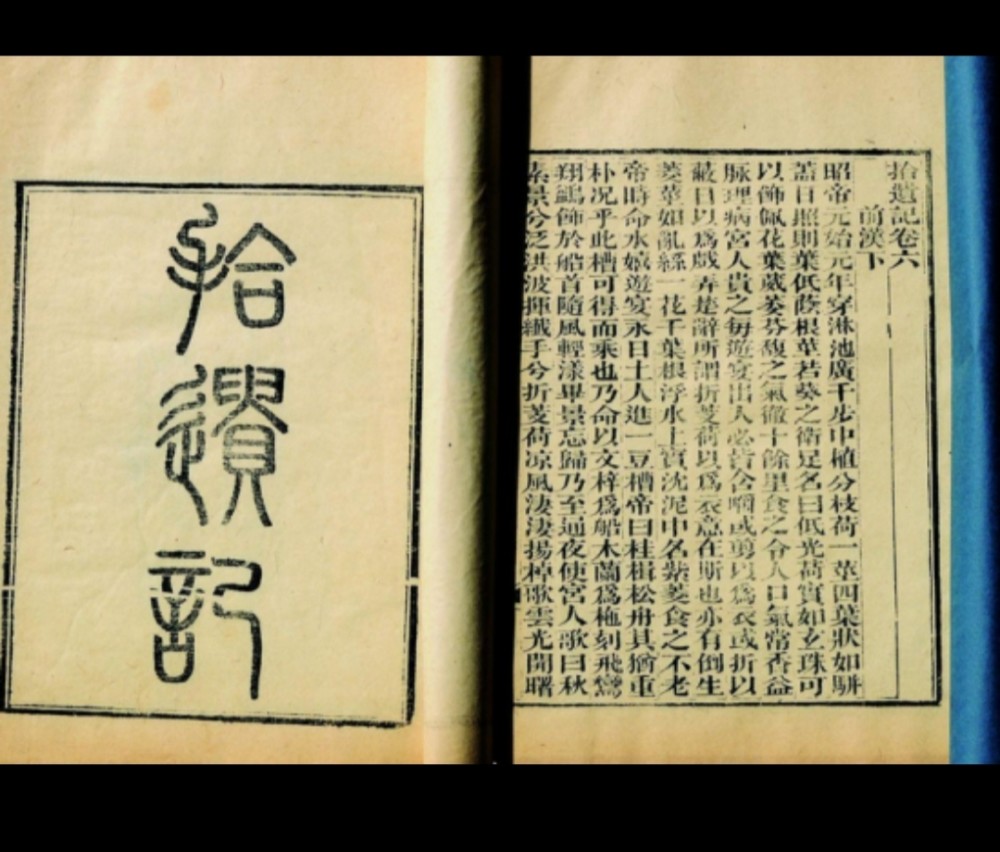 拾遺記
拾遺記卷六
前漢下
昭帝元始元年穿淋池廣千步中植分枝荷一莖四葉狀如駢
蓋日照則葉低蔭根莖若葵之衛足名曰低光荷實如玄珠可
以飾佩花葉葳萎芬馥之氣徹十餘里食之令人口氣常香益
脉理病宮人貴之每遊宴出入必皆含嚼或剪以為衣或折以
蔽日以為戲弄楚辭所謂折芰荷以為衣意在斯也亦有倒生
菱莖如亂絲一花千葉根浮水上實沈泥中名紫菱食之不老
帝時命水嬉遊宴永日土人進一豆槽帝曰桂楫松舟其猶重
朴况乎此槽可得而乘也乃命以文梓為船木蘭為柂刻飛鸞
翔鷁飾於船首隨風輕漾畢景忘歸乃至通夜使宮人歌曰秋
素景兮泛洪波揮纖手兮折芰荷凉風淒淒揚棹歌雲光開曙